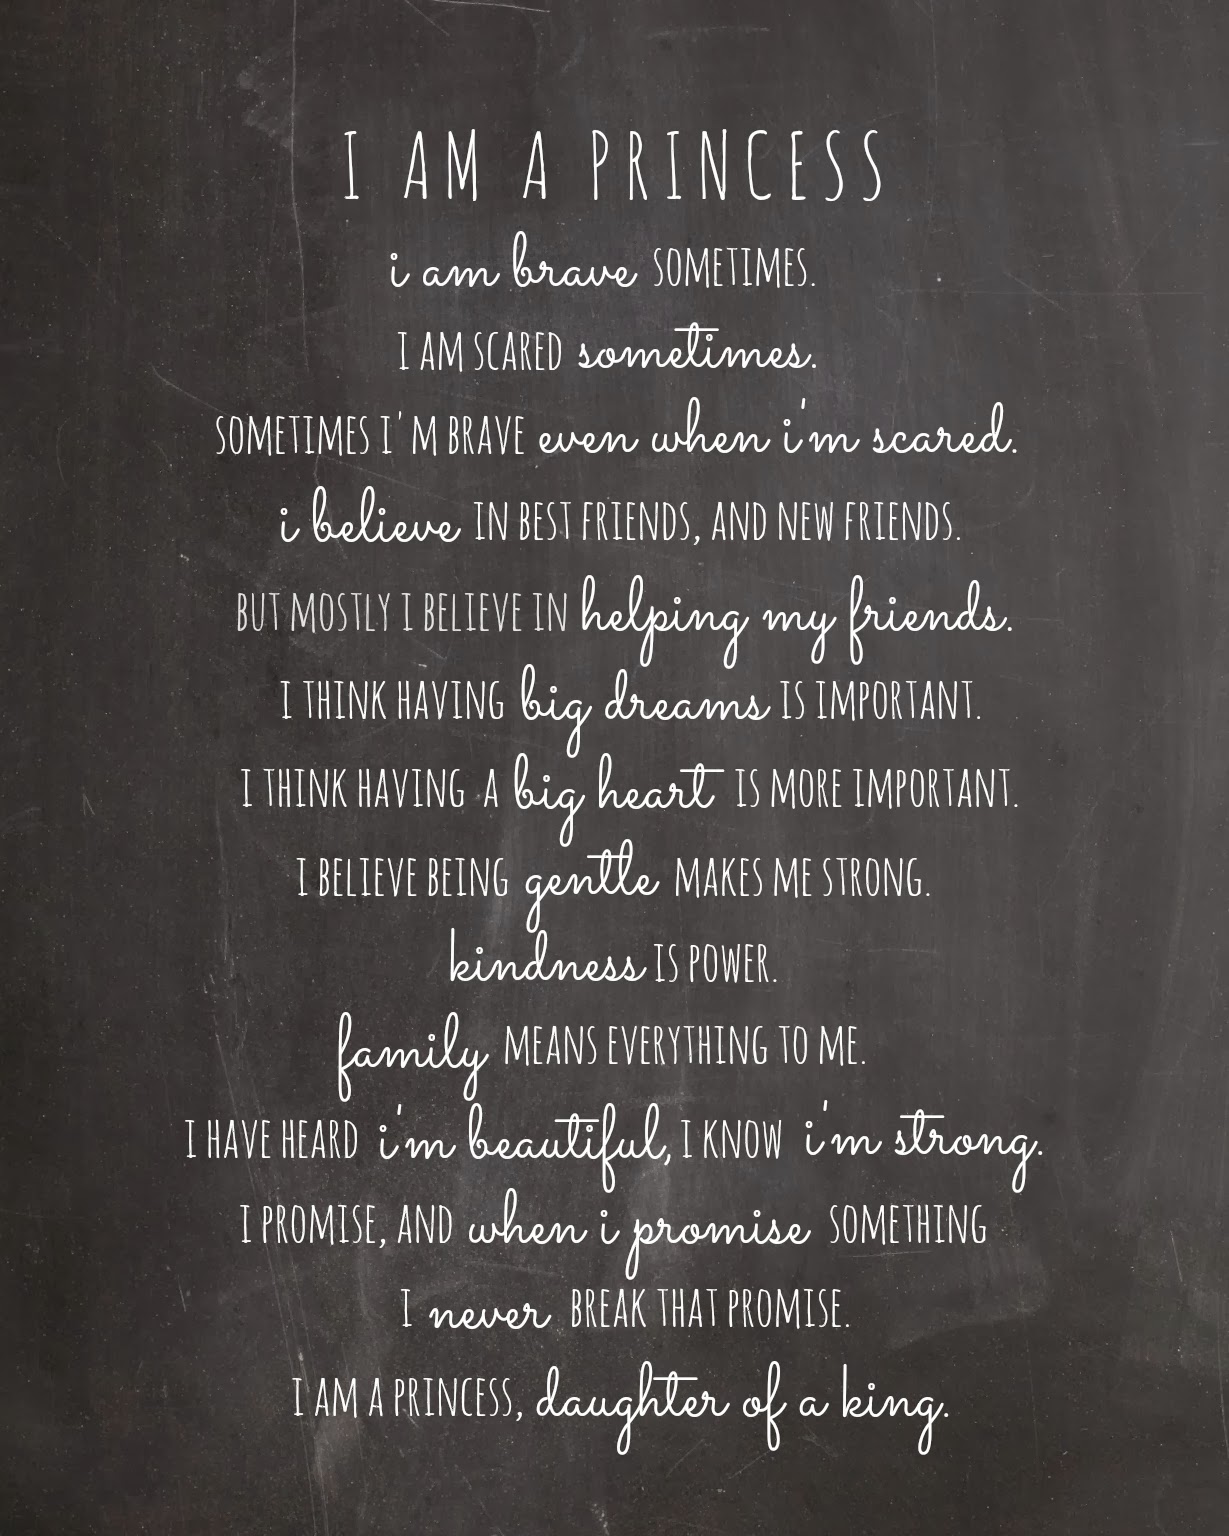 I AM A PRINCESS
i am brave SOMETIMES.
I AM SCARED sometimes.
SOMETIMES I'M BRAVE even when i'm scared.
i believe IN BEST FRIENDS, AND NEW FRIENDS.
BUT MOSTLY I BELIEVE IN helping my friends.
I THINK HAVING big dreams IS IMPORTANT.
I THINK HAVING A big heart IS MORE IMPORTANT.
I BELIEVE BEING gentle MAKES ME STRONG.
kindness IS POWER.
family MEANS EVERYTHING TO ME.
I HAVE HEARD i'm beautiful, I KNOW i'm strong.
I PROMISE, AND when i promise SOMETHING
I never BREAK THAT PROMISE.
I AM A PRINCESS, daughter of a king.